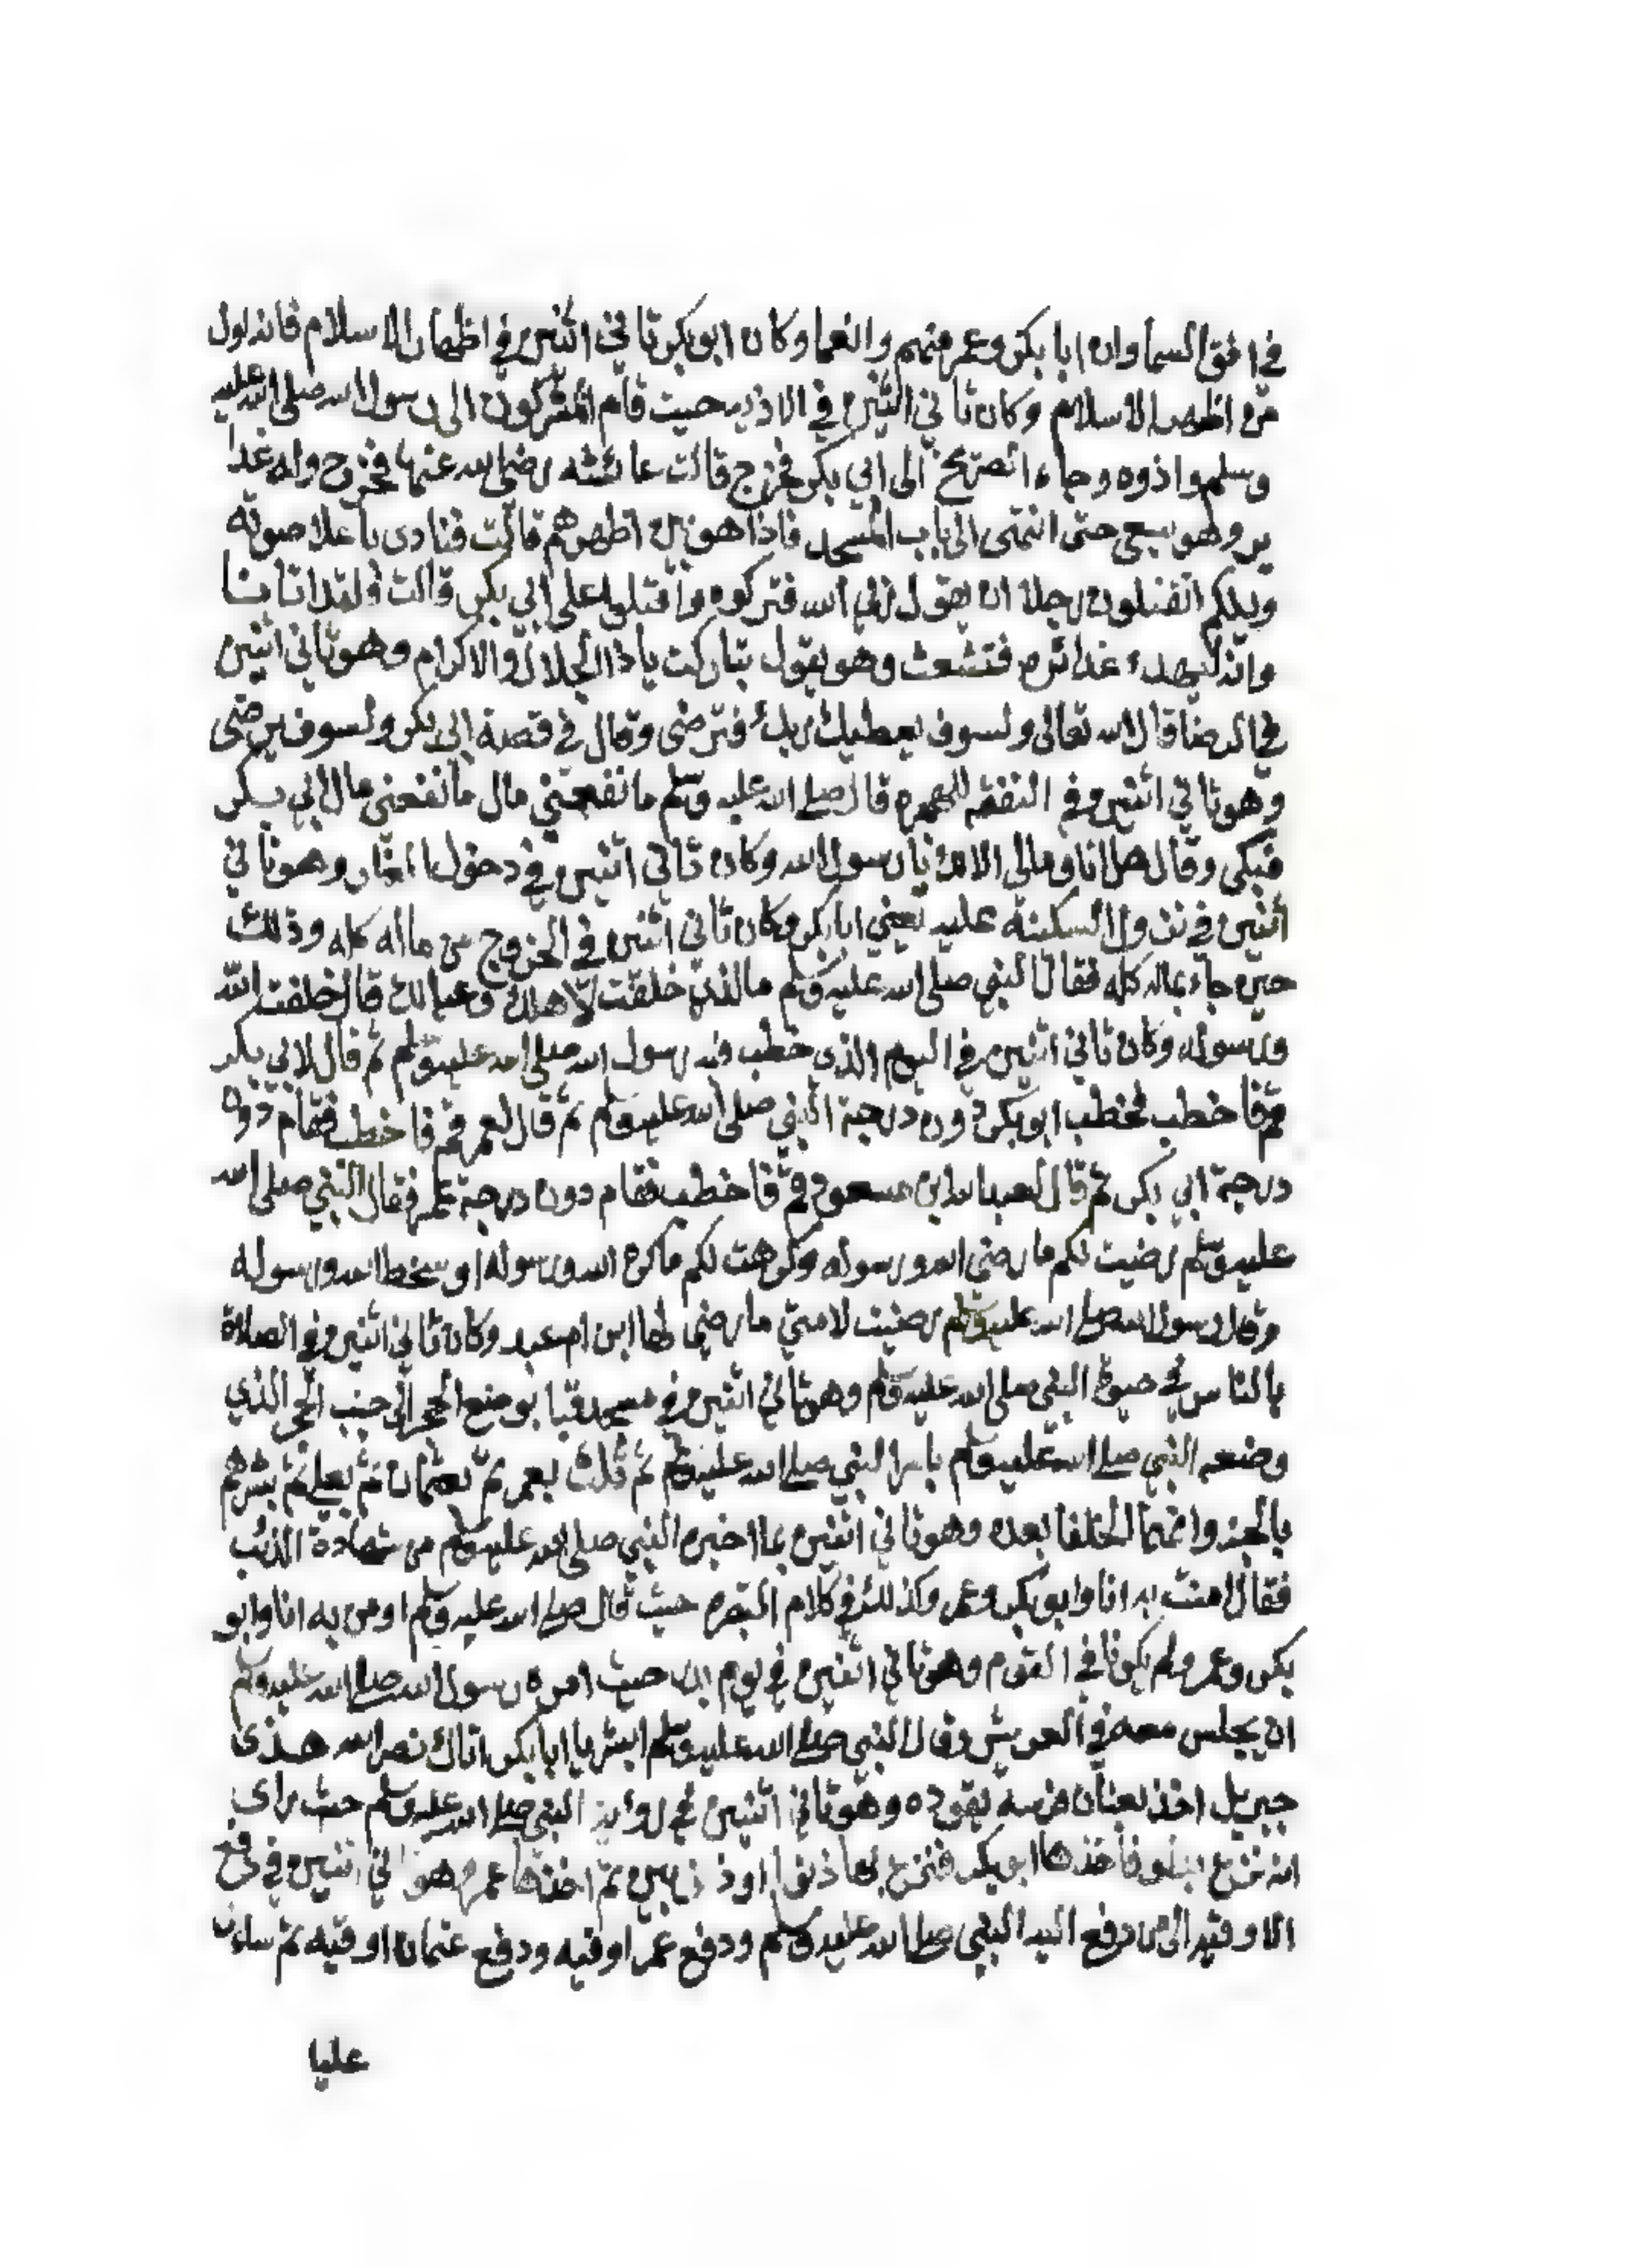 في افق السما وان ابا بكر وعمر منهم وانعما وكان ابو بكر ثاني اثنين في اظهار الاسلام فانه اول
من اظهر الاسلام وكان ثاني اثنين في الاذيه حيث قام المشركون الى رسول الله صلى الله عليه
وسلم واذوه وجاء الصريخ الى ابي بكر فخرج قالت عائشه رضي الله عنها فخرج وله غدا
ير وهو يسعى حتى انتهى الى باب المسجد فاذا هو بين اظهرهم قالت فنادى باعلا صوته
ويلكم اتقتلون رجلا ان يقول ربي الله فتركوه واقبلوا على ابي بكر قالت ولقد اتانا
وانه غدائره فتشعث وهو يقول تباركت يا ذا الجلال والاكرام وهو ثاني اثنين
في الرضا قال الله تعالى ولسوف يعطيك ربك فترضى وقال في قصة ابي بكر ولسوف يرضى
وهو ثاني اثنين في النفقه قال صلى الله عليه وسلم ما نفعني مال ما نفعني مال ابي بكر
فبكى وقال هل انا ومالي الا لك يا رسول الله وكان ثاني اثنين في دخول الغار وهو ثاني
اثنين في نزول السكينة عليه يعني ابا بكر وكان ثاني اثنين في الخروج من ماله كله وذلك
حين جاء بماله كله فقال النبي صلى الله عليه وسلم ما الذي خلفت لاهلك وعيالك قال خلفت الله
ورسوله وكان ثاني اثنين في اليوم الذي خطب فيه رسول الله صلى الله عليه وسلم ثم قال لابي بكر
قم فاخطب فخطب ابو بكر دون درجة النبي صلى الله عليه وسلم ثم قال لعمر قم فاخطب فقام دون
درجة ابي بكر ثم قال لعبد الله ابن مسعود قم فاخطب فقام دون درجة عمر فقال النبي صلى الله
عليه وسلم رضيت لكم ما رضي الله ورسوله وكرهت لكم ما كره الله ورسوله او سخط الله ورسوله
وقال رسول الله صلى الله عليه وسلم رضيت لامتي ما رضي لها ابن ام عبد وكان ثاني اثنين في الصلاة
بالناس في حيوة النبي صلى الله عليه وسلم وهو ثاني اثنين في مسجد قبا بوضع الحجر الى جنب الحجر الذي
وضعه النبي صلى الله عليه وسلم بامر النبي صلى الله عليه وسلم ثم ثلث بعمر ثم بعثمان ثم بعلي ثم بشرهم
بالجنه وانهما الخلفا بعده وهو ثاني اثنين بما اخبره النبي صلى الله عليه وسلم من شهادة الذئب
فقال امنت به انا وابو بكر وعمر وكذلك في كلام البقره حيث قال صلى الله عليه وسلم اومن به انا وابو
بكر وعمر ولم يكونا في القوم وهو ثاني اثنين في يوم بدر حيث امره رسول الله صلى الله عليه وسلم
ان يجلس معه في العريش وقال النبي صلى الله عليه وسلم ابشر يا ابا بكر اتاك نصر الله هذى
جبريل اخذ بعنان فرسه يقوده وهو ثاني اثنين في رؤية النبي صلى الله عليه وسلم حيث راى
انه نزع بدلو فاخذها ابو بكر فنزع بها ذنوبا او ذنوبين ثم اخذها عمر وهو ثاني اثنين في دفع
الاوقيه الى من دفع اليه النبي صلى الله عليه وسلم ودفع عمر اوقيه ودفع عثمان اوقيه ثم سا
عليا